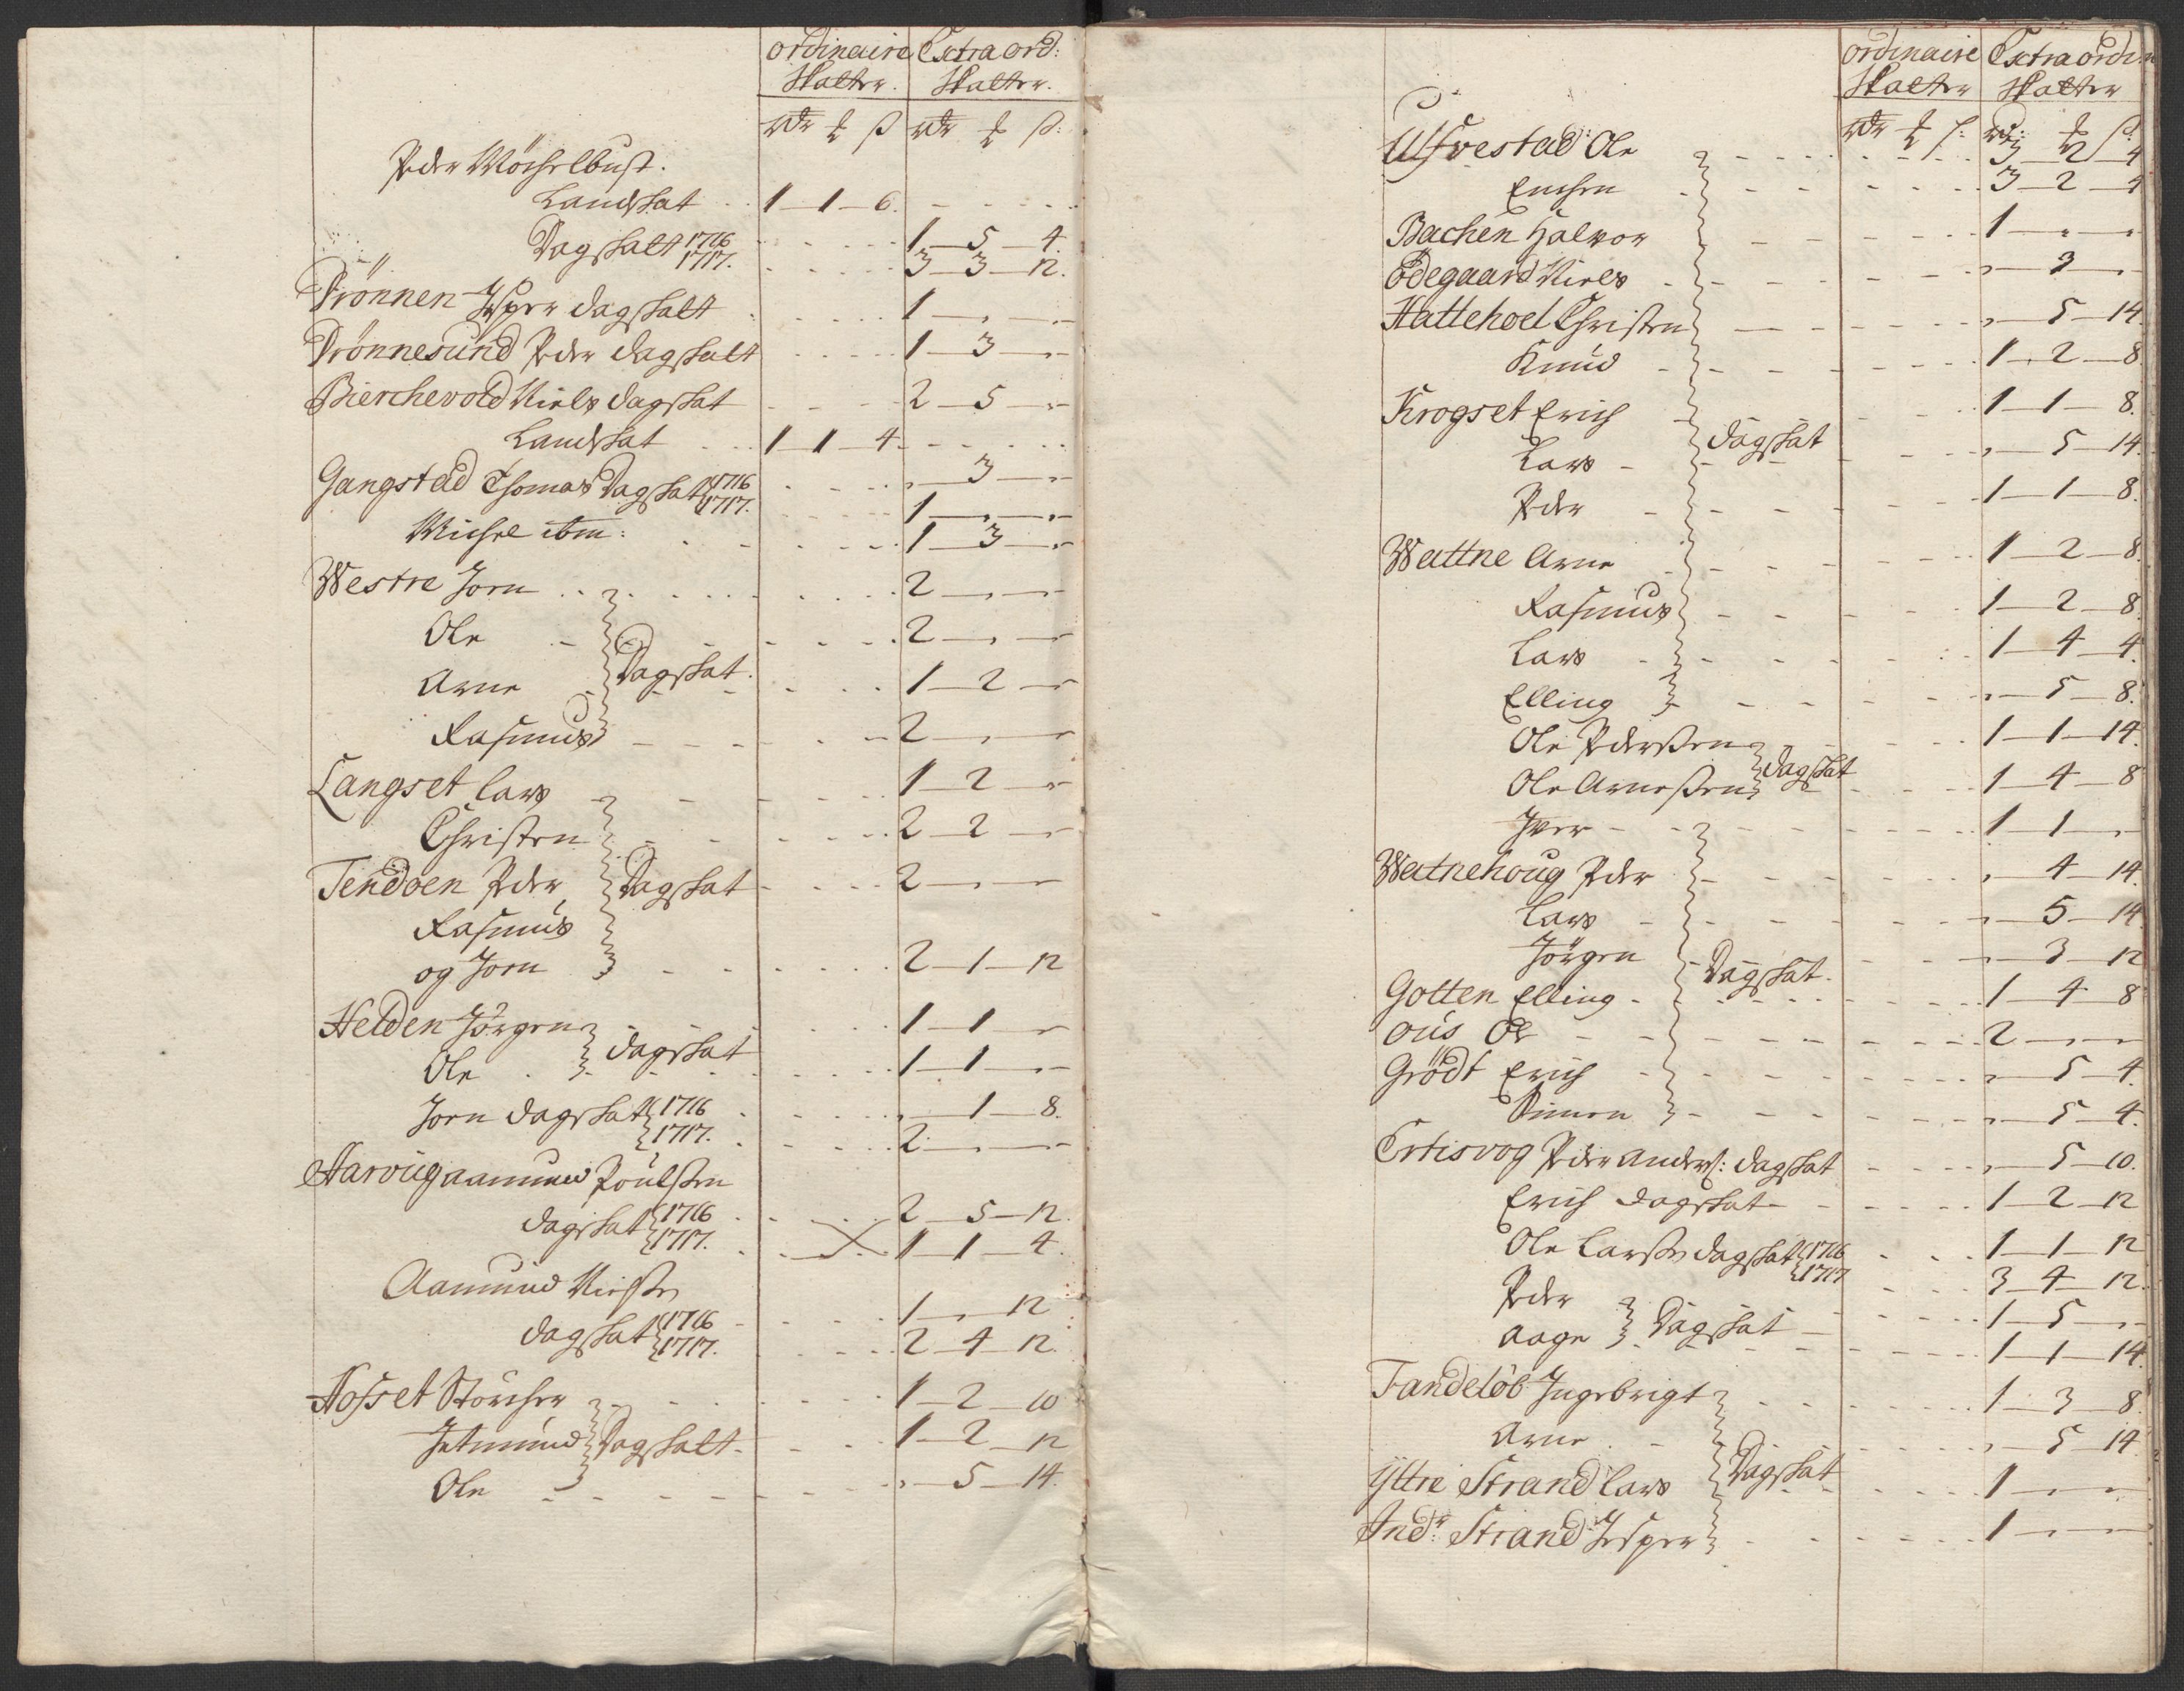 ordinaire Extra ord:
Skatter. Skatter.
rdr ƺ ß rdr ƺ ß:
Peder
Landskat 1—1—6.
Dagskatt 1716 1—5—4.
1717. 3—3—12.
Drönnen Jesper dagskatt 1—„—„
Drönnesund Peder dagskatt 1—3—„
Bierchevold Niels dagskat 2—5—„
Landskat 1—1—4
Gangstad Thomas Dagskat 1716 „—3—„
1717. 1—„—„
Michel ibm: 1—3—„
Westre Jorn 2—„—„
Ole 2—„—„
Arne Dagskat. 1—2—„
Rasmus 2—„—„
Langset Lars 1—2—„
Christen 2—2—„
Tendoen Peder Dagskat 2—„—„
Rasmus
og Jorn 2—1—12
Helden Jörgen 1—1—„
Ole dagskat 1—1—„
Jorn dagskat 1716 „—1—8.
1717. 2—„—„
Harvig Aamund Poulsen
dagskat 1716 2—5—12.
1717. 1—1—4.
Aamund
dagskat 1716 1—„—12
1717. 2—4—12.
Hofset 1—2—10
Jetmund Dagskatt 1—2—12
Ole „—5—14.
ordinaire Extraordin
Skatter Skatter
rdr ƺ ß: rdr: ƺ ß:
Ulfvestad Ole 3—2—4
3—2—4
Bachen Halvor 1—„—„
Ödegaard Niels „—3—„
Hattehoel Christen „—5—14.
Knud 1—2—8
Krogset Erich 1—1—8.
Lars dagskat „—5—14.
Peder 1—1—8.
Wattne Arne 1—2—8.
Rasmus 1—2—8.
Lars 1—4—4.
Elling „—5—8.
Ole Pedersen 1—1—14.
Ole Arnesen dagskat 1—4—8
Iver 1—1—„
Watnehoug Peder „—4—14.
Lars „—5—14
Jörgen Dagskat. „—3—12
Gotten Elling 1—4—8
Ous Ole 2—„—„
Grödt Erich „—5—4.
Simen „—5—4.
Ertisvog Peder Anders: dagskat „—5—10.
Erich dagskat 1—2—12
Ole Larsen dagskat 1716 1—1—12
1717 3—4—12.
Peder 1—5—„
Aage Dagskat 1—1—14.
Tandelöb Ingebrigt 1—3—8
Arne „—5—14
Yttre Strand Lars Dagskat 1—„—„
Indr: Strand Jesper 1—„—„